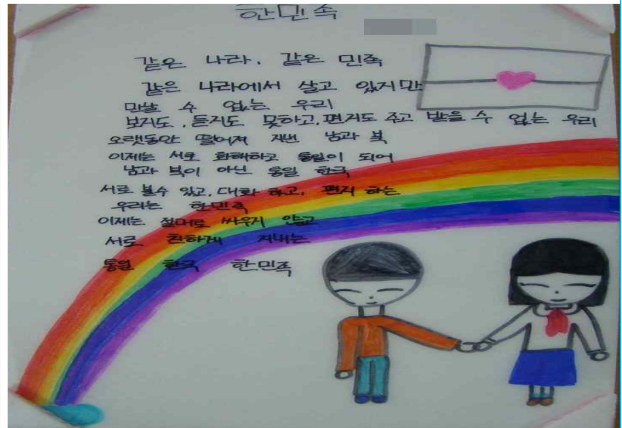 한민족
같은 나라, 같은 민족
같은 나라에서 살고 있지만
만날 수 없는 우리
보지도, 듣지도 못하고, 편지도 주고 받을 수 없는 우리
오랫동안 떨어져 지낸 남과 북
이제는 서로 화해하고 통일이 되어
남과 북이 아닌 통일 한국
서로 볼수 있고, 대화 하고, 편지 하는
우리는 한민족
이제는 절대로 싸우지 않고
서로 친하게 지내는
통일 한국 한민족